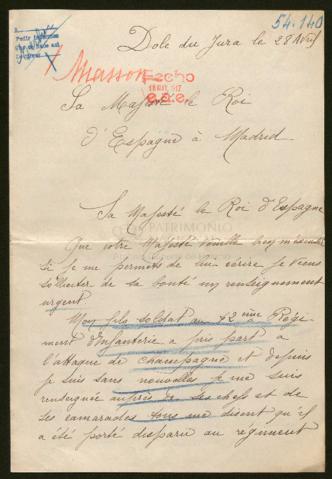 54.140
Dole du Jura le 28 Avril
Masson
Hecho
18 MAY. 917
Sa Majesté le Roi
d'Espagne à Madrid
Sa Majesté le Roi d'Espagne
PATRIMONIO
Que votre Majesté veuille bien m'excuser
si je me permets de lui écrire je viens
solliciter de sa bonté un renseignement
urgent
Mon fils soldat au 42 ème Régi
ment d'Infanterie a pris part à
l'attaque de Champagne et depuis
je suis sans nouvelles je me suis
renseignée auprès de ses chefs et de
ses camarades tous me disent qu'il
a été porté disparu au régiment